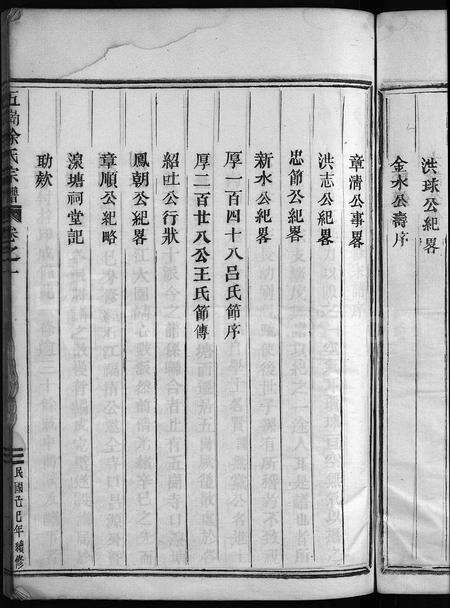 洪球公紀畧
金水公壽序
章清公事畧
洪志公紀畧
忠節公紀畧
新水公紀畧
厚一百四十八呂氏節序
厚二百廿八公王氏節傳
紹吐公行狀
鳳朝公紀畧
章順公紀略
滾塘祠堂記
助欸
五崗徐氏宗譜 卷之一
民國己巳年續修